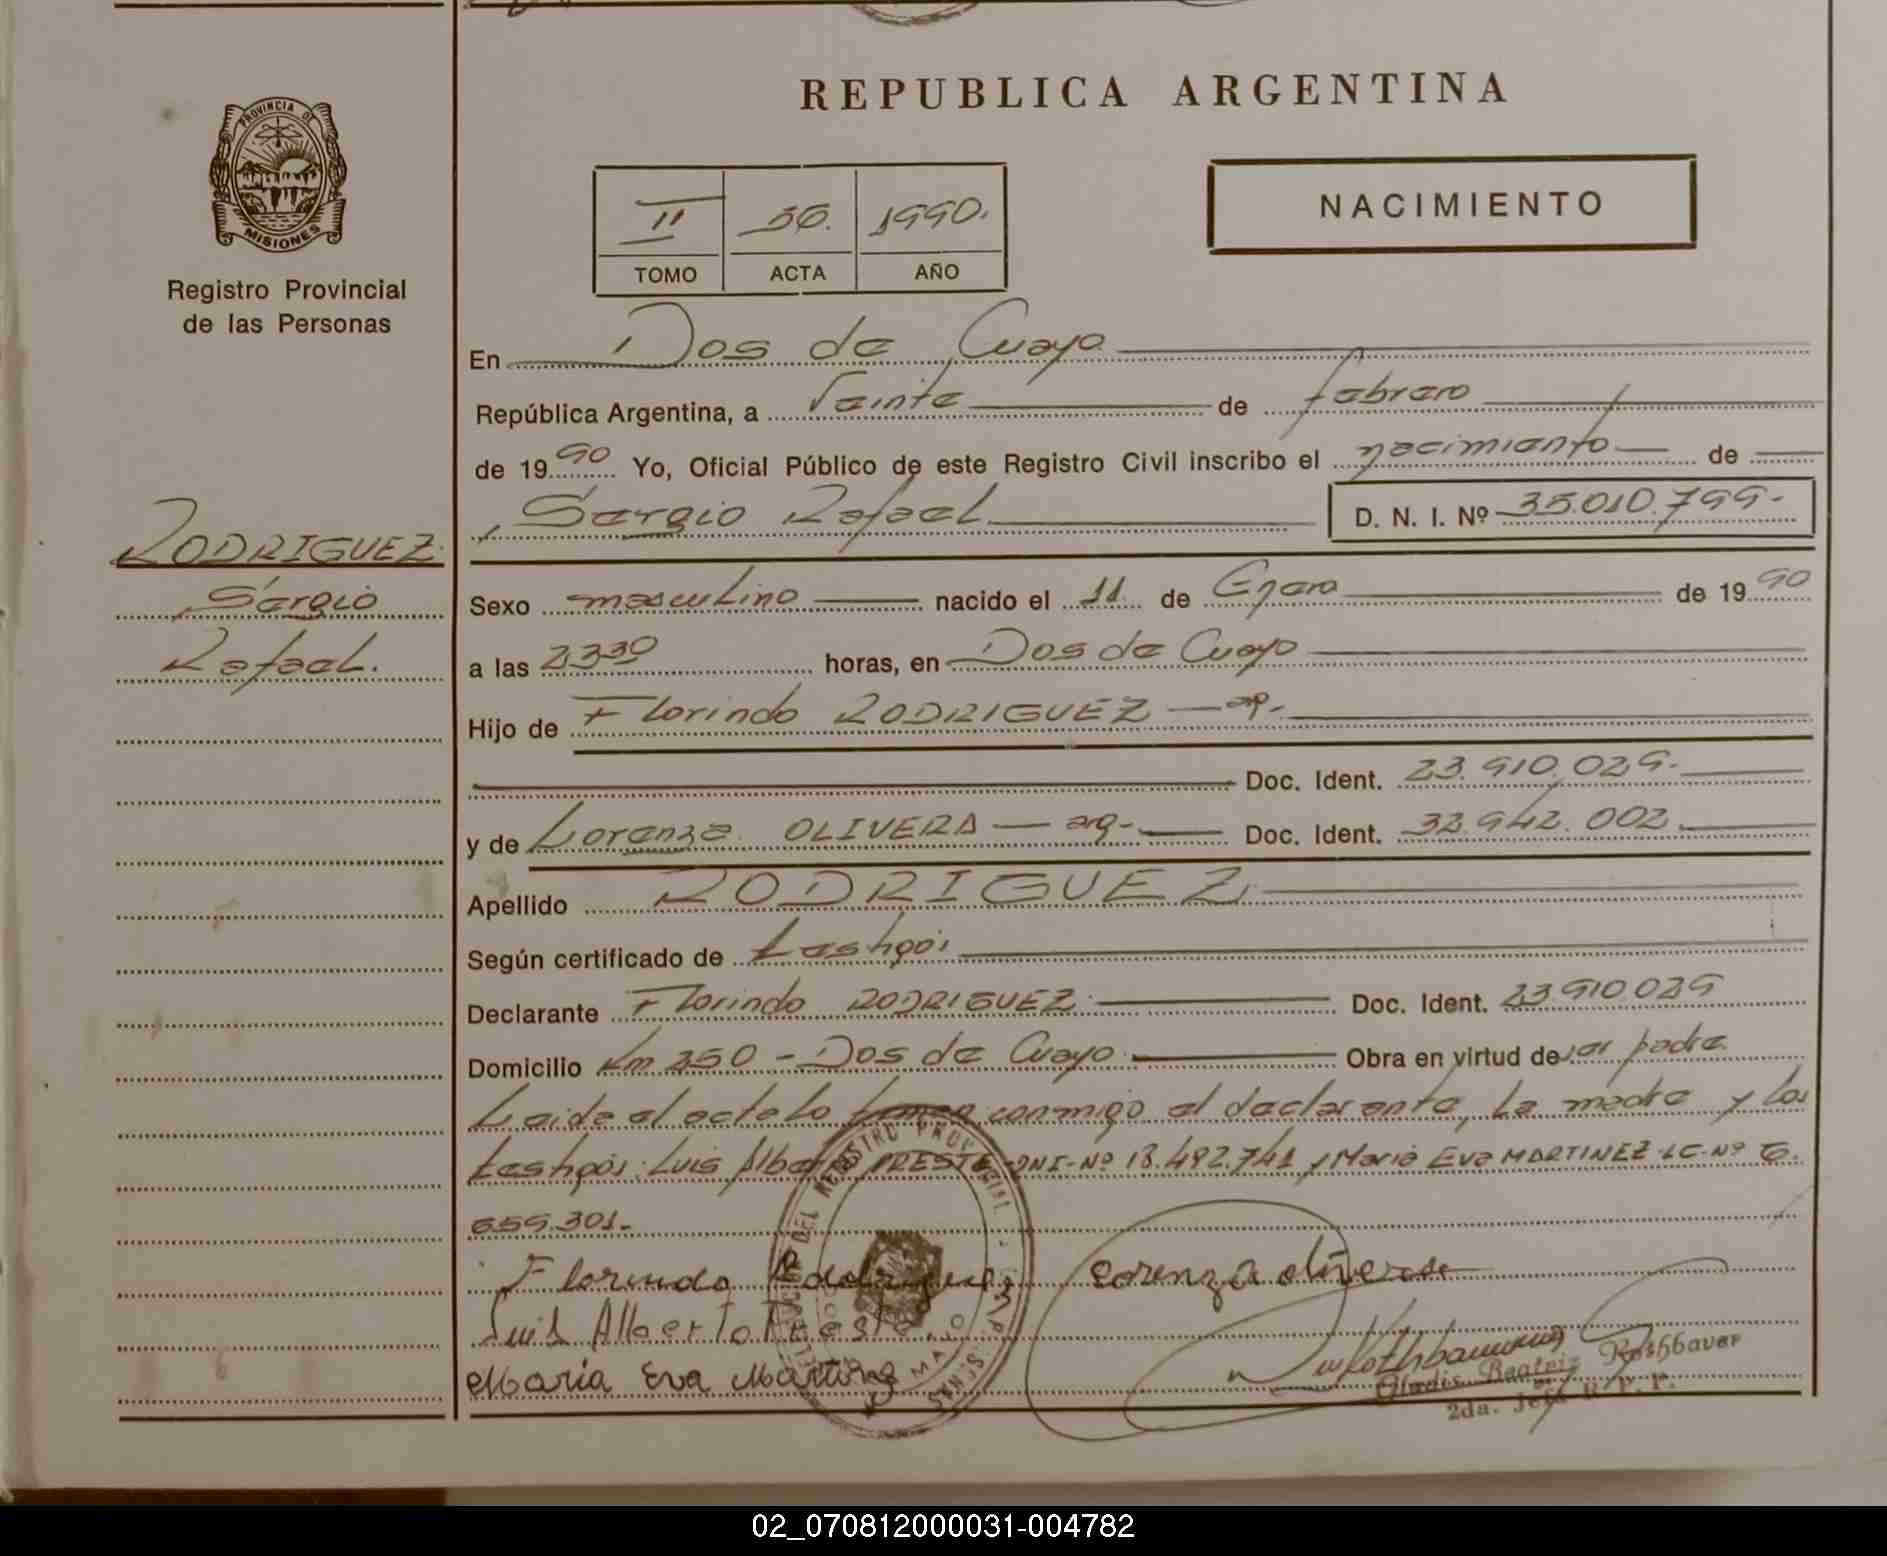 PROVINCIA DE
MISIONES
Registro Provincial
de las Personas
RODRIGUEZ
Sergio
Rafael.
REPUBLICA ARGENTINA
NACIMIENTO
II 56. 1990.
TOMO ACTA AÑO
En Dos de Mayo
República Argentina, a Veinte de febrero
de 19 90 Yo, Oficial Público de este Registro Civil inscribo el nacimiento de
Sergio Rafael D. N. I. Nº 35.010.799-
Sexo masculino nacido el 11 de Enero de 19 90
a las 2330 horas, en Dos de Mayo
Hijo de Florindo RODRIGUEZ - ar-
Doc. Ident. 23.910.029-
y de Lorenza OLIVERA - arg- Doc. Ident. 32.942.002
Apellido RODRIGUEZ
Según certificado de testigos
Declarante Florindo RODRIGUEZ Doc. Ident. 23.910.029
Domicilio Km 250 - Dos de Mayo Obra en virtud de ser padre
Leida el acta lo firman conmigo el declarante, la madre y los
testigos: Luis Alberto PRESTE-DNI-Nº 18.492.741 y Maria Eva MARTINEZ-LC-Nº 6.
659.301-
Florindo Rodriguez Lorenza olivera
Luis Alberto Preste
Maria Eva Martinez
Gladis Beatriz Rothbauer
2da. Jefe R. P. P.
02_070812000031-004782